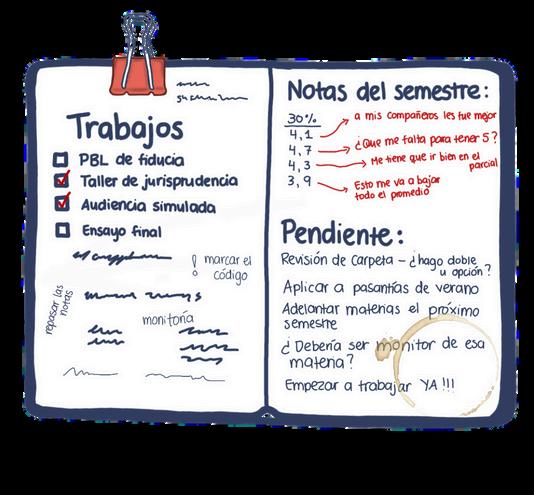 Trabajos
PBL de fiducia
Taller de jurisprudencia
Audiencia simulada
Ensayo final
! marcar el
código
repasar las
notas
monitoría
Notas del semestre:
30%
4,1
a mis compañeros les fue mejor
4,7
¿Que me falta para tener 5?
4,3
Me tiene que ir bien en el
parcial
3,9
Esto me va a bajar
todo el promedio
Pendiente:
Revisión de carpeta - ¿hago doble
u opción?
Aplicar a pasantías de verano
Adelantar materias el próximo
semestre
¿Debería ser monitor de esa
materia?
Empezar a trabajar YA!!!